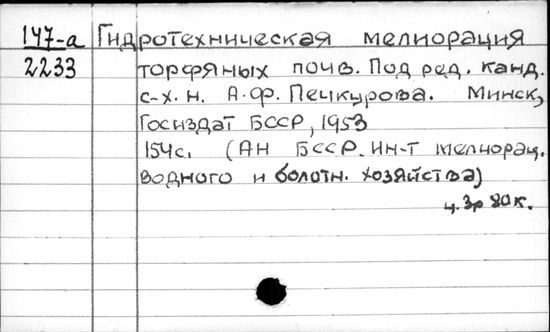 147-а Гидротехническая мелиорация
2233 торфяных почв. Под ред. канд.
с-х. н. А.Ф. Печкурова. Минск,
Госиздат БССР, 1953
154с. (АН БССР. Ин-т мелиорац.
водного и болотн. хозяйства)
ц. 3р 80к.